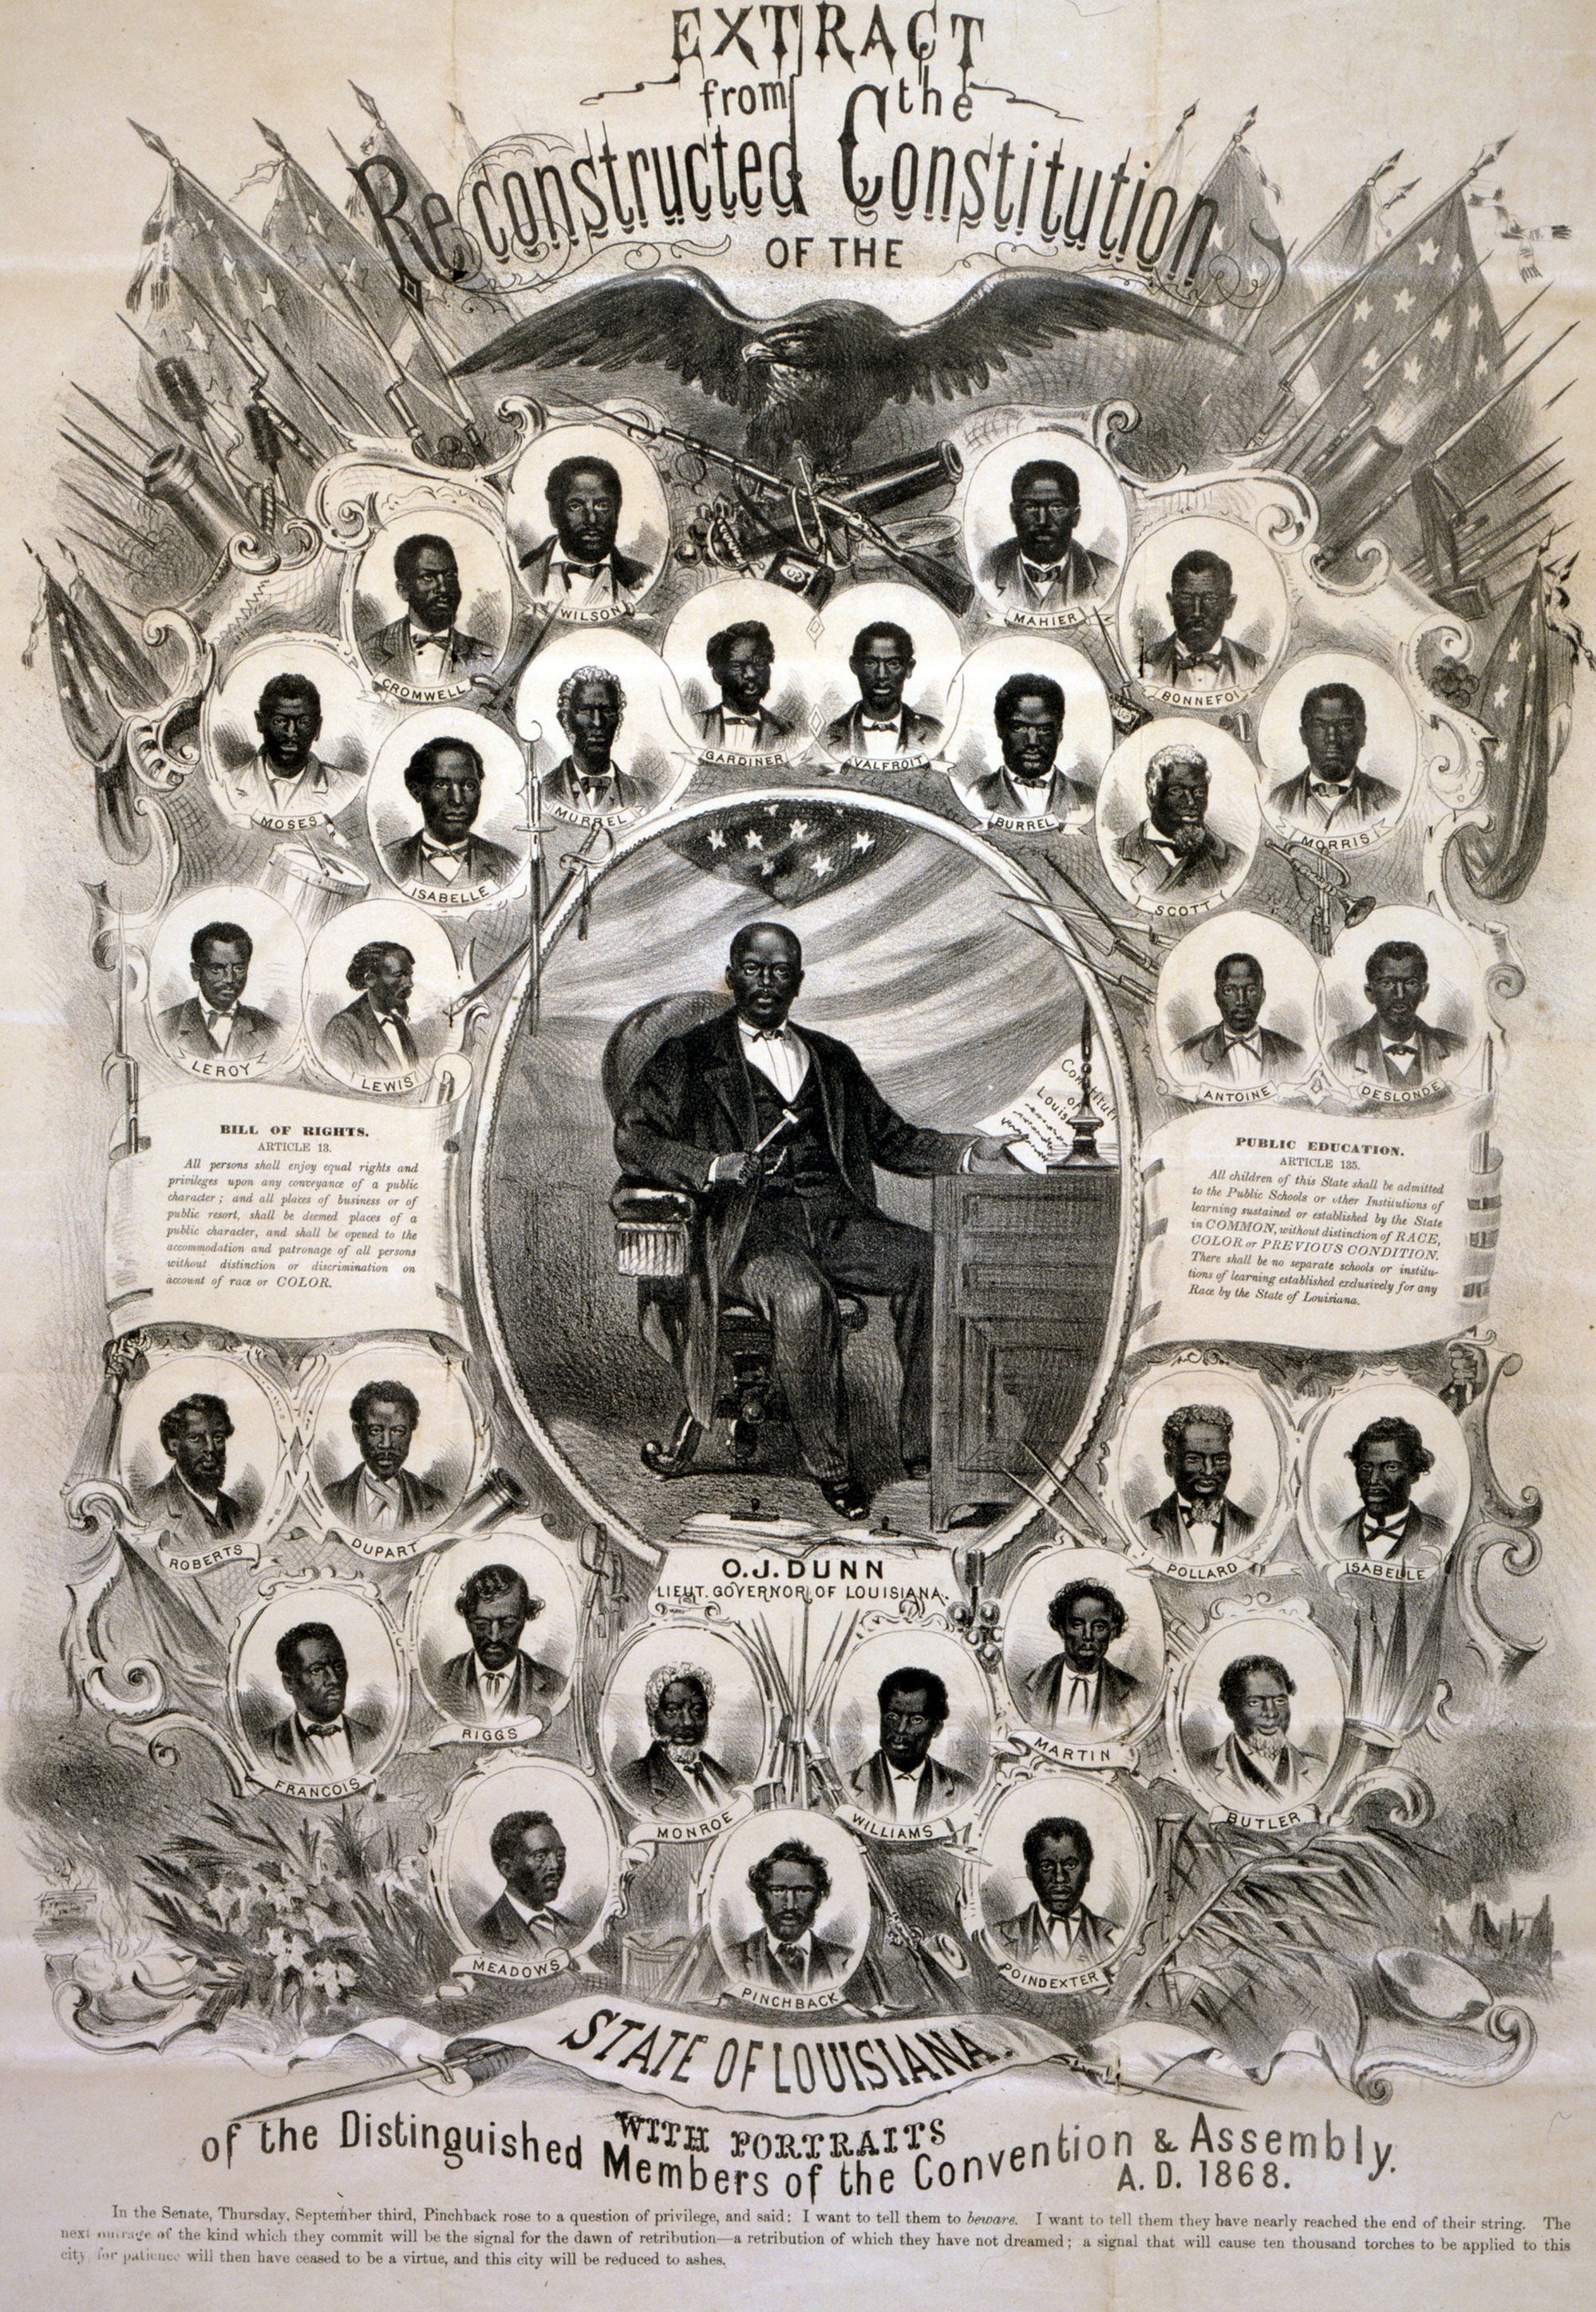 EXTRACT
from the
Reconstructed Constitution
OF THE
WILSON
MAHIER
CROMWELL
BONNEFOI
GARDINER
VALFROIT
MOSES
MURREL
BURREL
MORRIS
ISABELLE
SCOTT
LEROY
LEWIS
ANTOINE
DESLONDE
Constituti
of
Louisi
BILL OF RIGHTS.
ARTICLE 13.
All persons shall enjoy equal rights and
privileges upon any conveyance of a public
character; and all places of business or of
public resort, shall be deemed places of a
public character, and shall be opened to the
accommodation and patronage of all persons
without distinction or discrimination on
account of race or COLOR.
PUBLIC EDUCATION.
ARTICLE 135.
All children of this State shall be admitted
to the Public Schools or other Institutions of
learning sustained or established by the State
in COMMON, without distinction of RACE,
COLOR or PREVIOUS CONDITION.
There shall be no separate schools or institu-
tions of learning established exclusively for any
Race by the State of Louisiana.
ROBERTS
DUPART
POLLARD
ISABELLE
O. J. DUNN
LIEUT. GOVERNOR OF LOUISIANA.
FRANCOIS
RIGGS
MONROE
WILLIAMS
MARTIN
BUTLER
MEADOWS
PINCHBACK
POINDEXTER
STATE OF LOUISIANA.
WITH PORTRAITS
of the Distinguished Members of the Convention & Assembly.
A. D. 1868.
In the Senate, Thursday, September third, Pinchback rose to a question of privilege, and said: I want to tell them to beware. I want to tell them they have nearly reached the end of their string. The
next outrage of the kind which they commit will be the signal for the dawn of retribution—a retribution of which they have not dreamed; a signal that will cause ten thousand torches to be applied to this
city, for patience will then have ceased to be a virtue, and this city will be reduced to ashes.